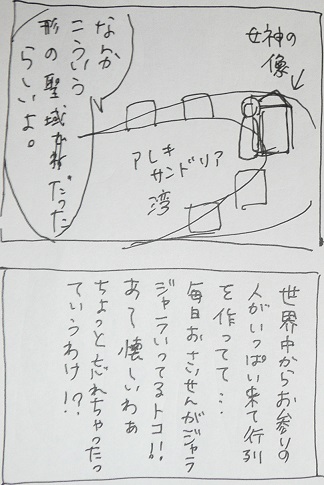 女神の
像
なんか
こういう
形の聖域だった
らしいよ。
アレキ
サンドリア
湾
世界中からお参りの
人がいっぱい来て行列
を作ってて…
毎日おさいせんがジャラ
ジャラいってるトコ!!
あ〜懐しいわぁ
ちょっと忘れちゃったっ
ていうわけ!?